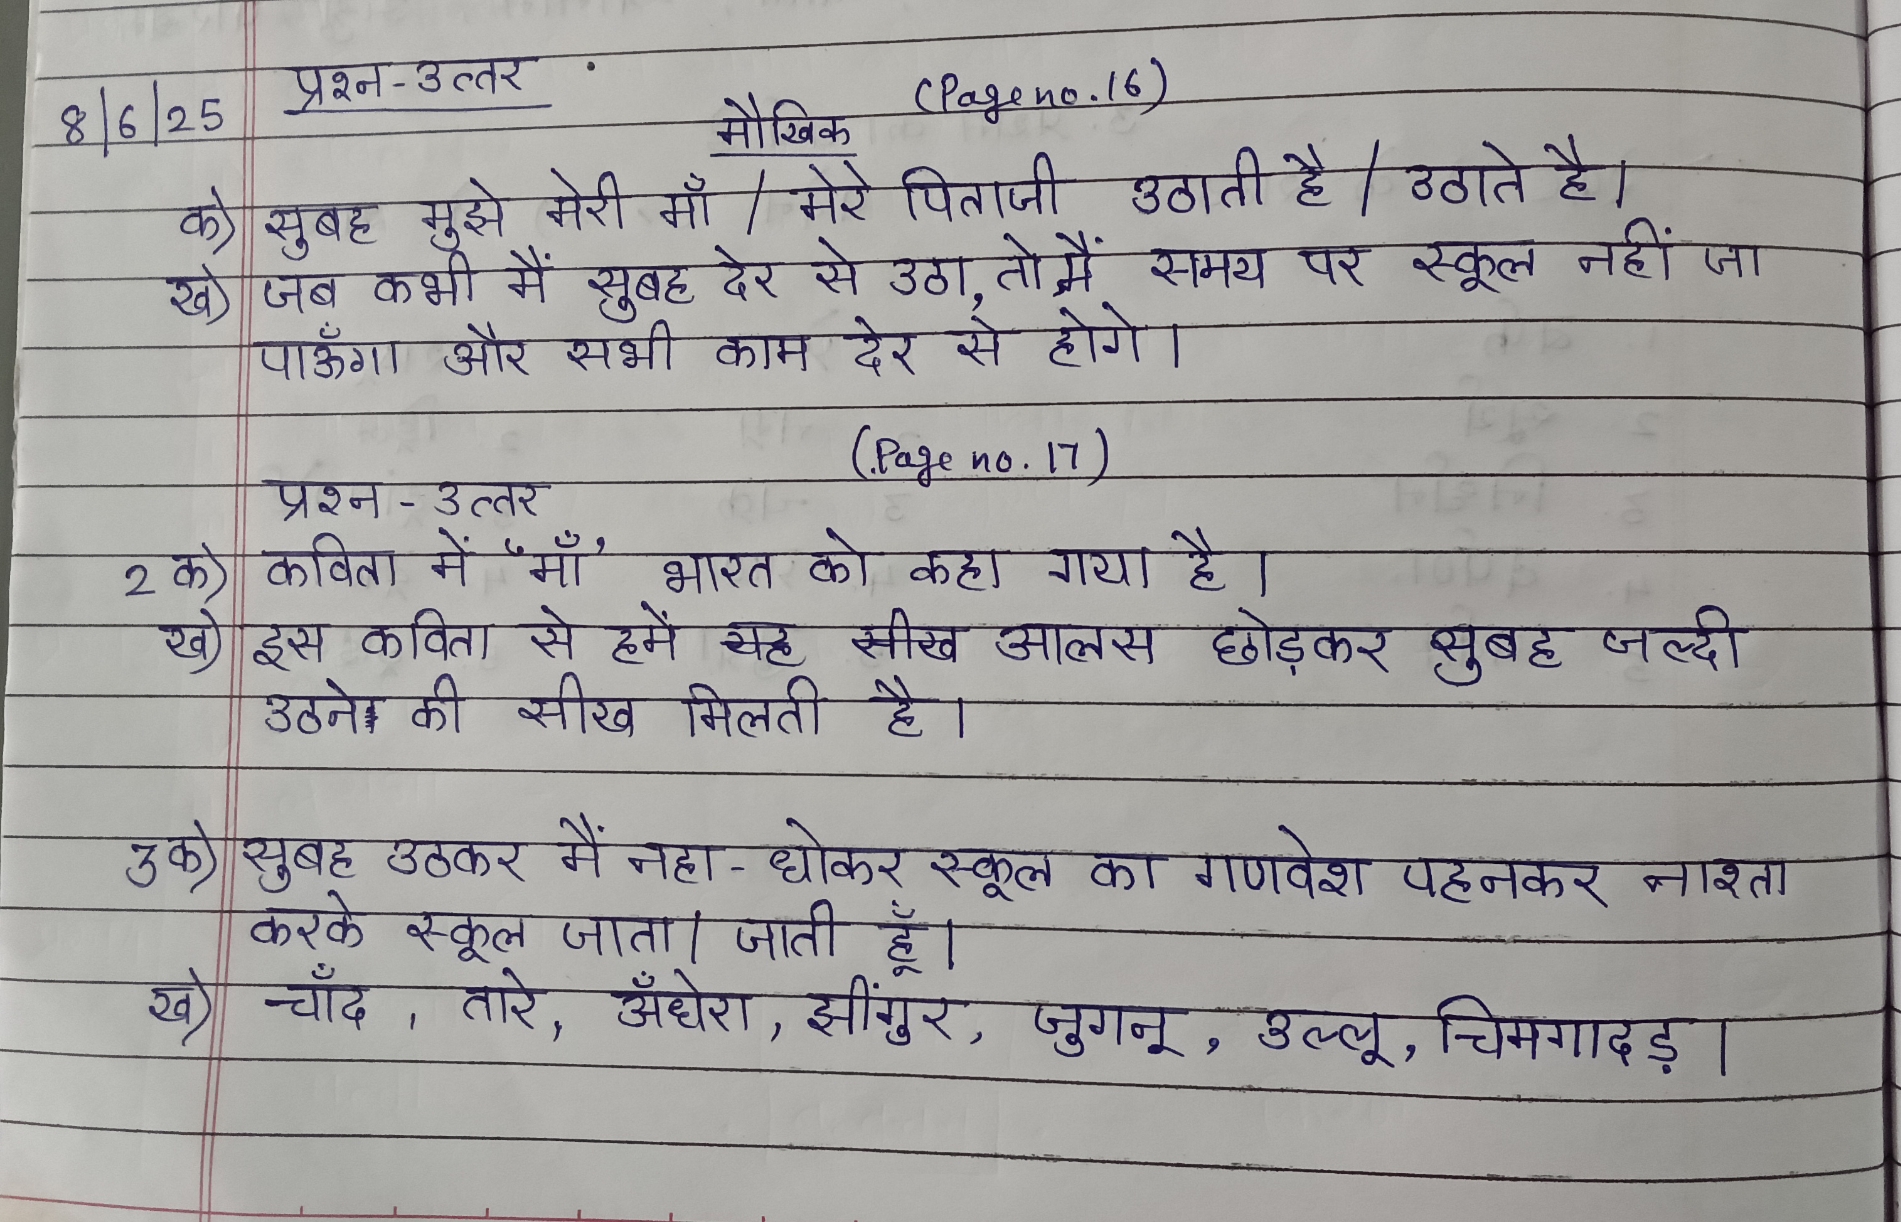 प्रश्न-उत्तर
8/6/25
(Page no. 16)
मौखिक
क) सुबह मुझे मेरी माँ / मेरे पिताजी उठाती है / उठाते है।
ख) जब कभी मैं सुबह देर से उठा, तो मैं समय पर स्कूल नहीं जा
पाऊँगा और सभी काम देर से होगे।
(Page no. 17)
प्रश्न - उत्तर
2 क) कविता में 'माँ' भारत को कहा गया है।
ख) इस कविता से हमें यह सीख आलस छोड़कर सुबह जल्दी
उठने की सीख मिलती है।
3 क) सुबह उठकर मैं नहा - धोकर स्कूल का गणवेश पहनकर नाश्ता
करके स्कूल जाता / जाती हूँ।
ख) चाँद, तारे, अँधेरा, झींगुर, जुगनू, उल्लू, चिमगादड़।